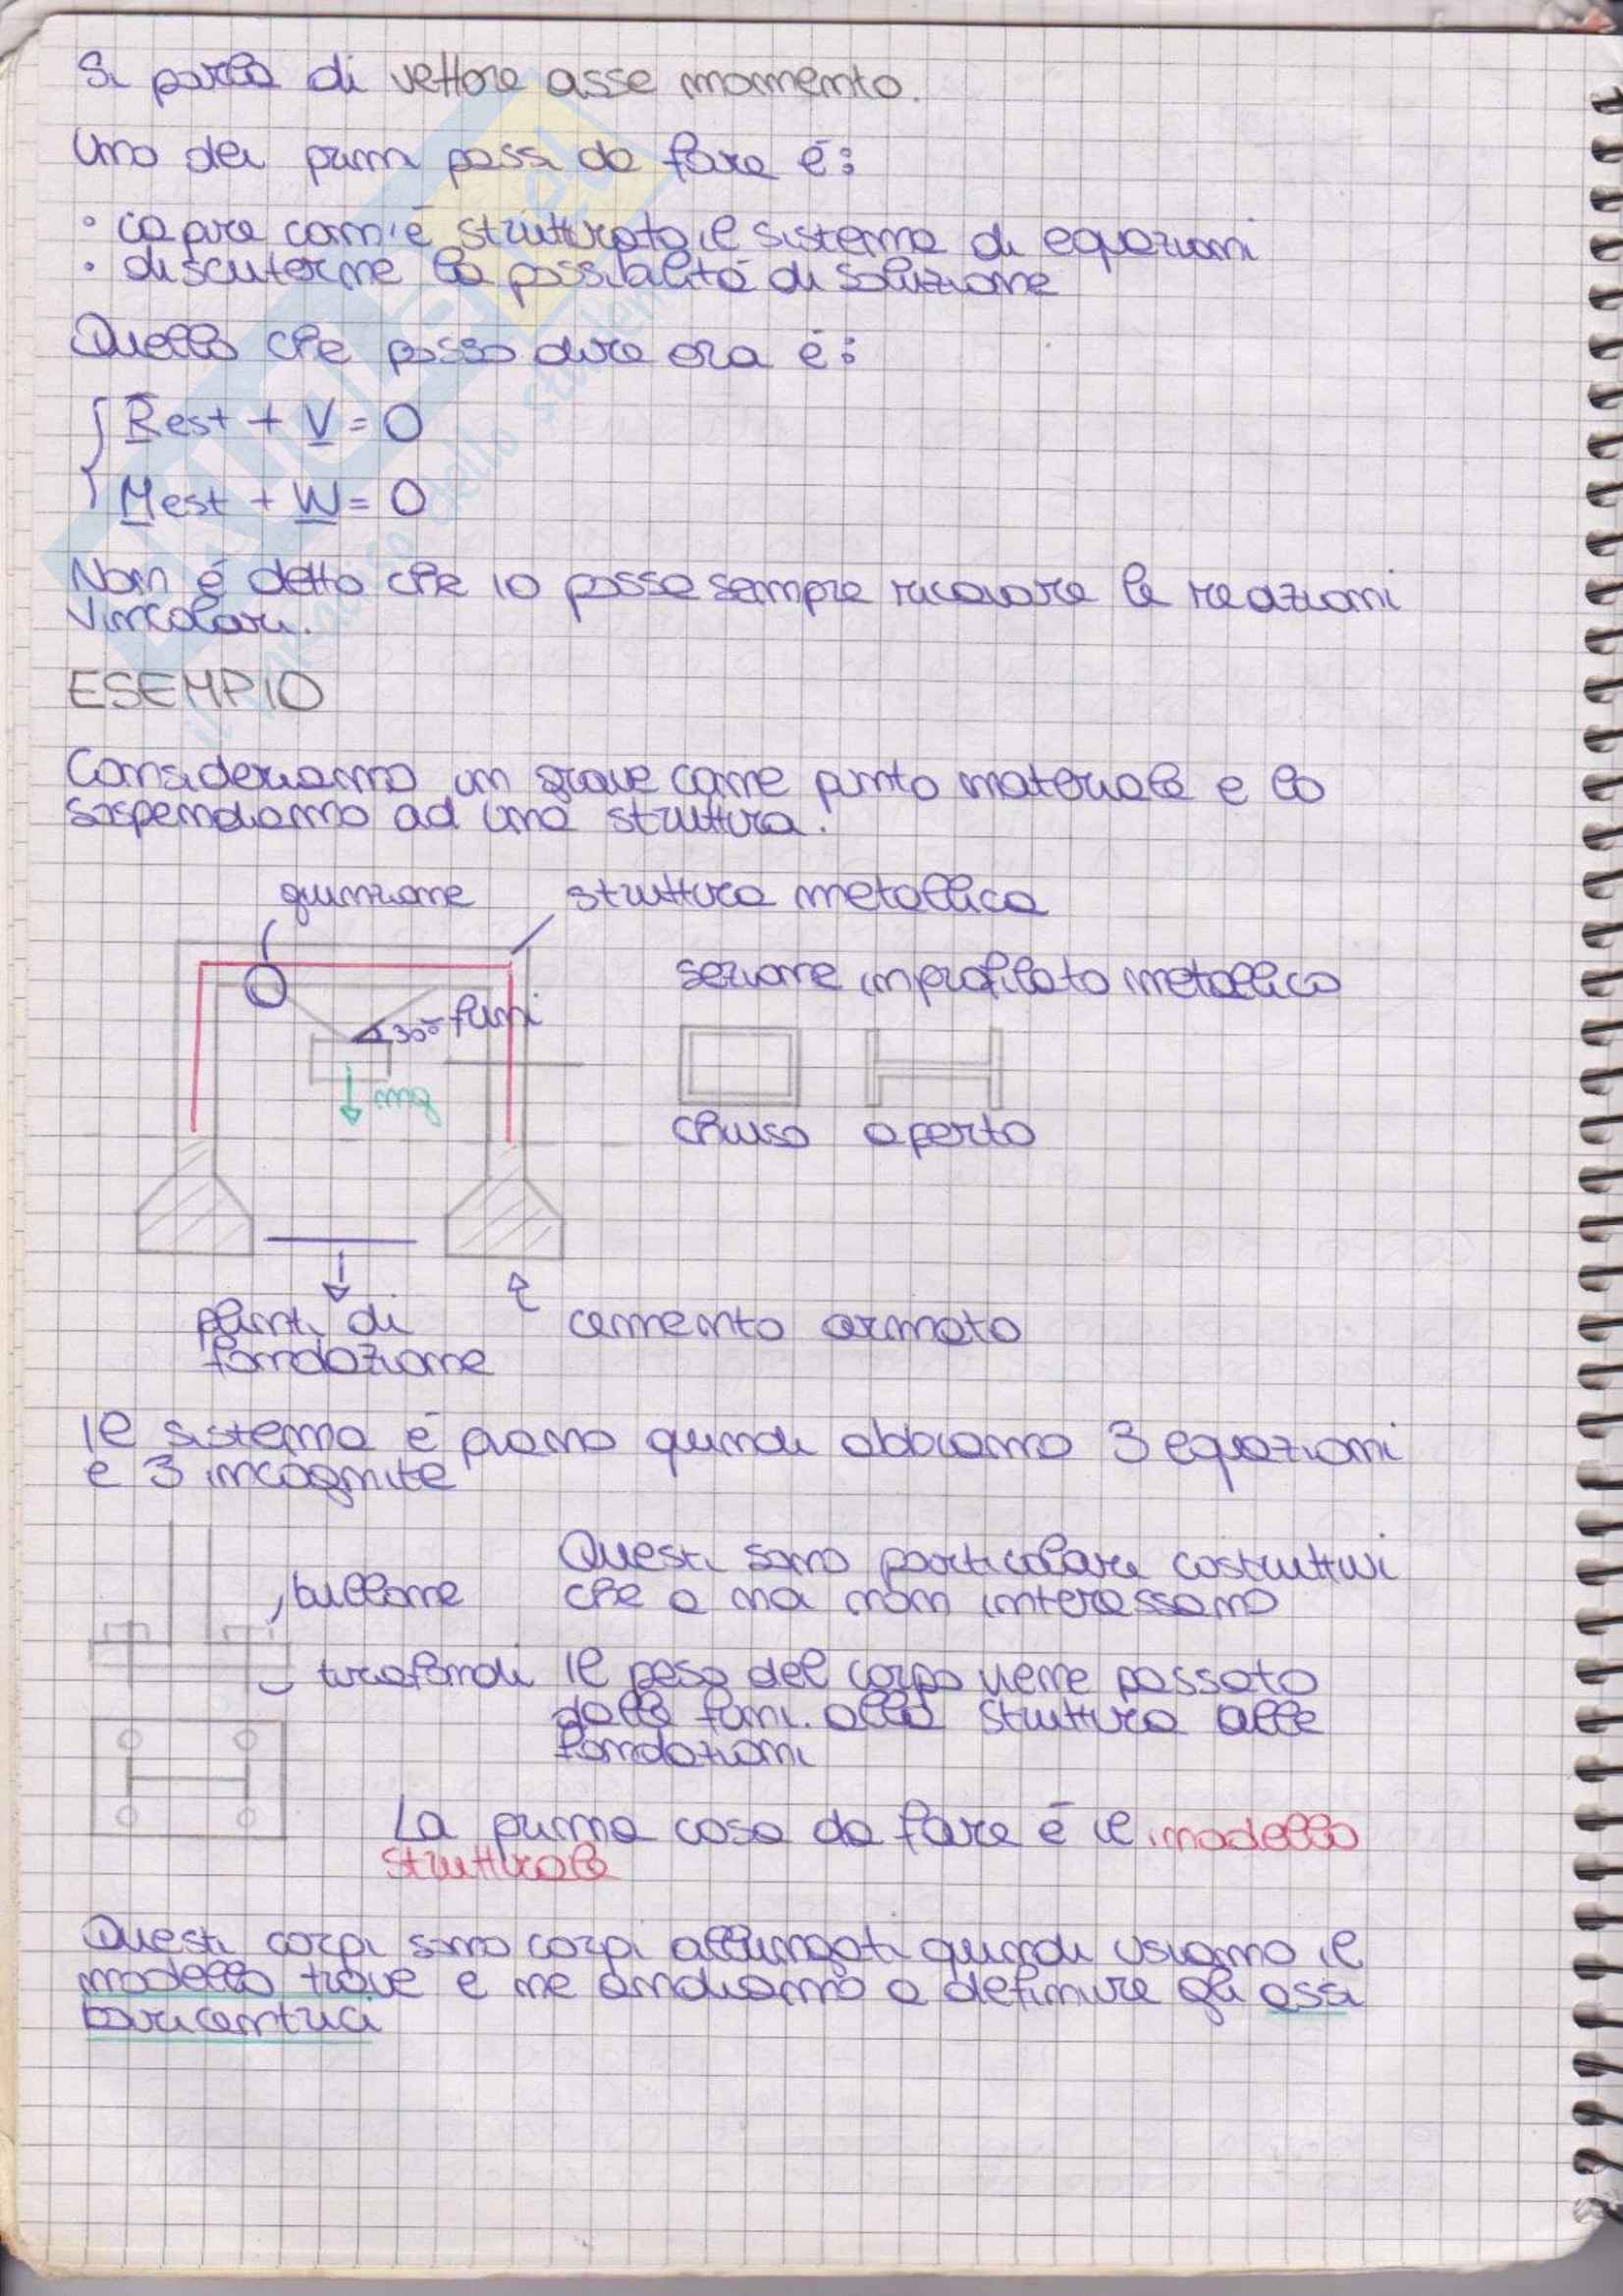 Si parla di vettore asse momento.
Uno dei primi passi da fare è:
• capire com'è strutturato il sistema di equazioni
• discuterne la possibilità di soluzione
Quello che posso dire ora è:
Rest + V = 0
Mest + W = 0
Non è detto che io possa sempre ricavare le reazioni
vincolari.
ESEMPIO
Consideriamo un grave come punto materiale e lo
sospendiamo ad una struttura.
giunzione struttura metallica
sezione in profilato metallico
30° funi
mg
chiuso aperto
plinti di
fondazione
cemento armato
Il sistema è piano quindi abbiamo 3 equazioni
e 3 incognite
Questi sono particolari costruttivi
che a noi non interessano
bullone
tirafondi
Il peso del corpo viene passato
dalle funi alla struttura alle
fondazioni
La prima cosa da fare è il modello
strutturale
Questi corpi sono corpi allungati quindi usiamo il
modello trave e ne andiamo a definire gli assi
baricentrici